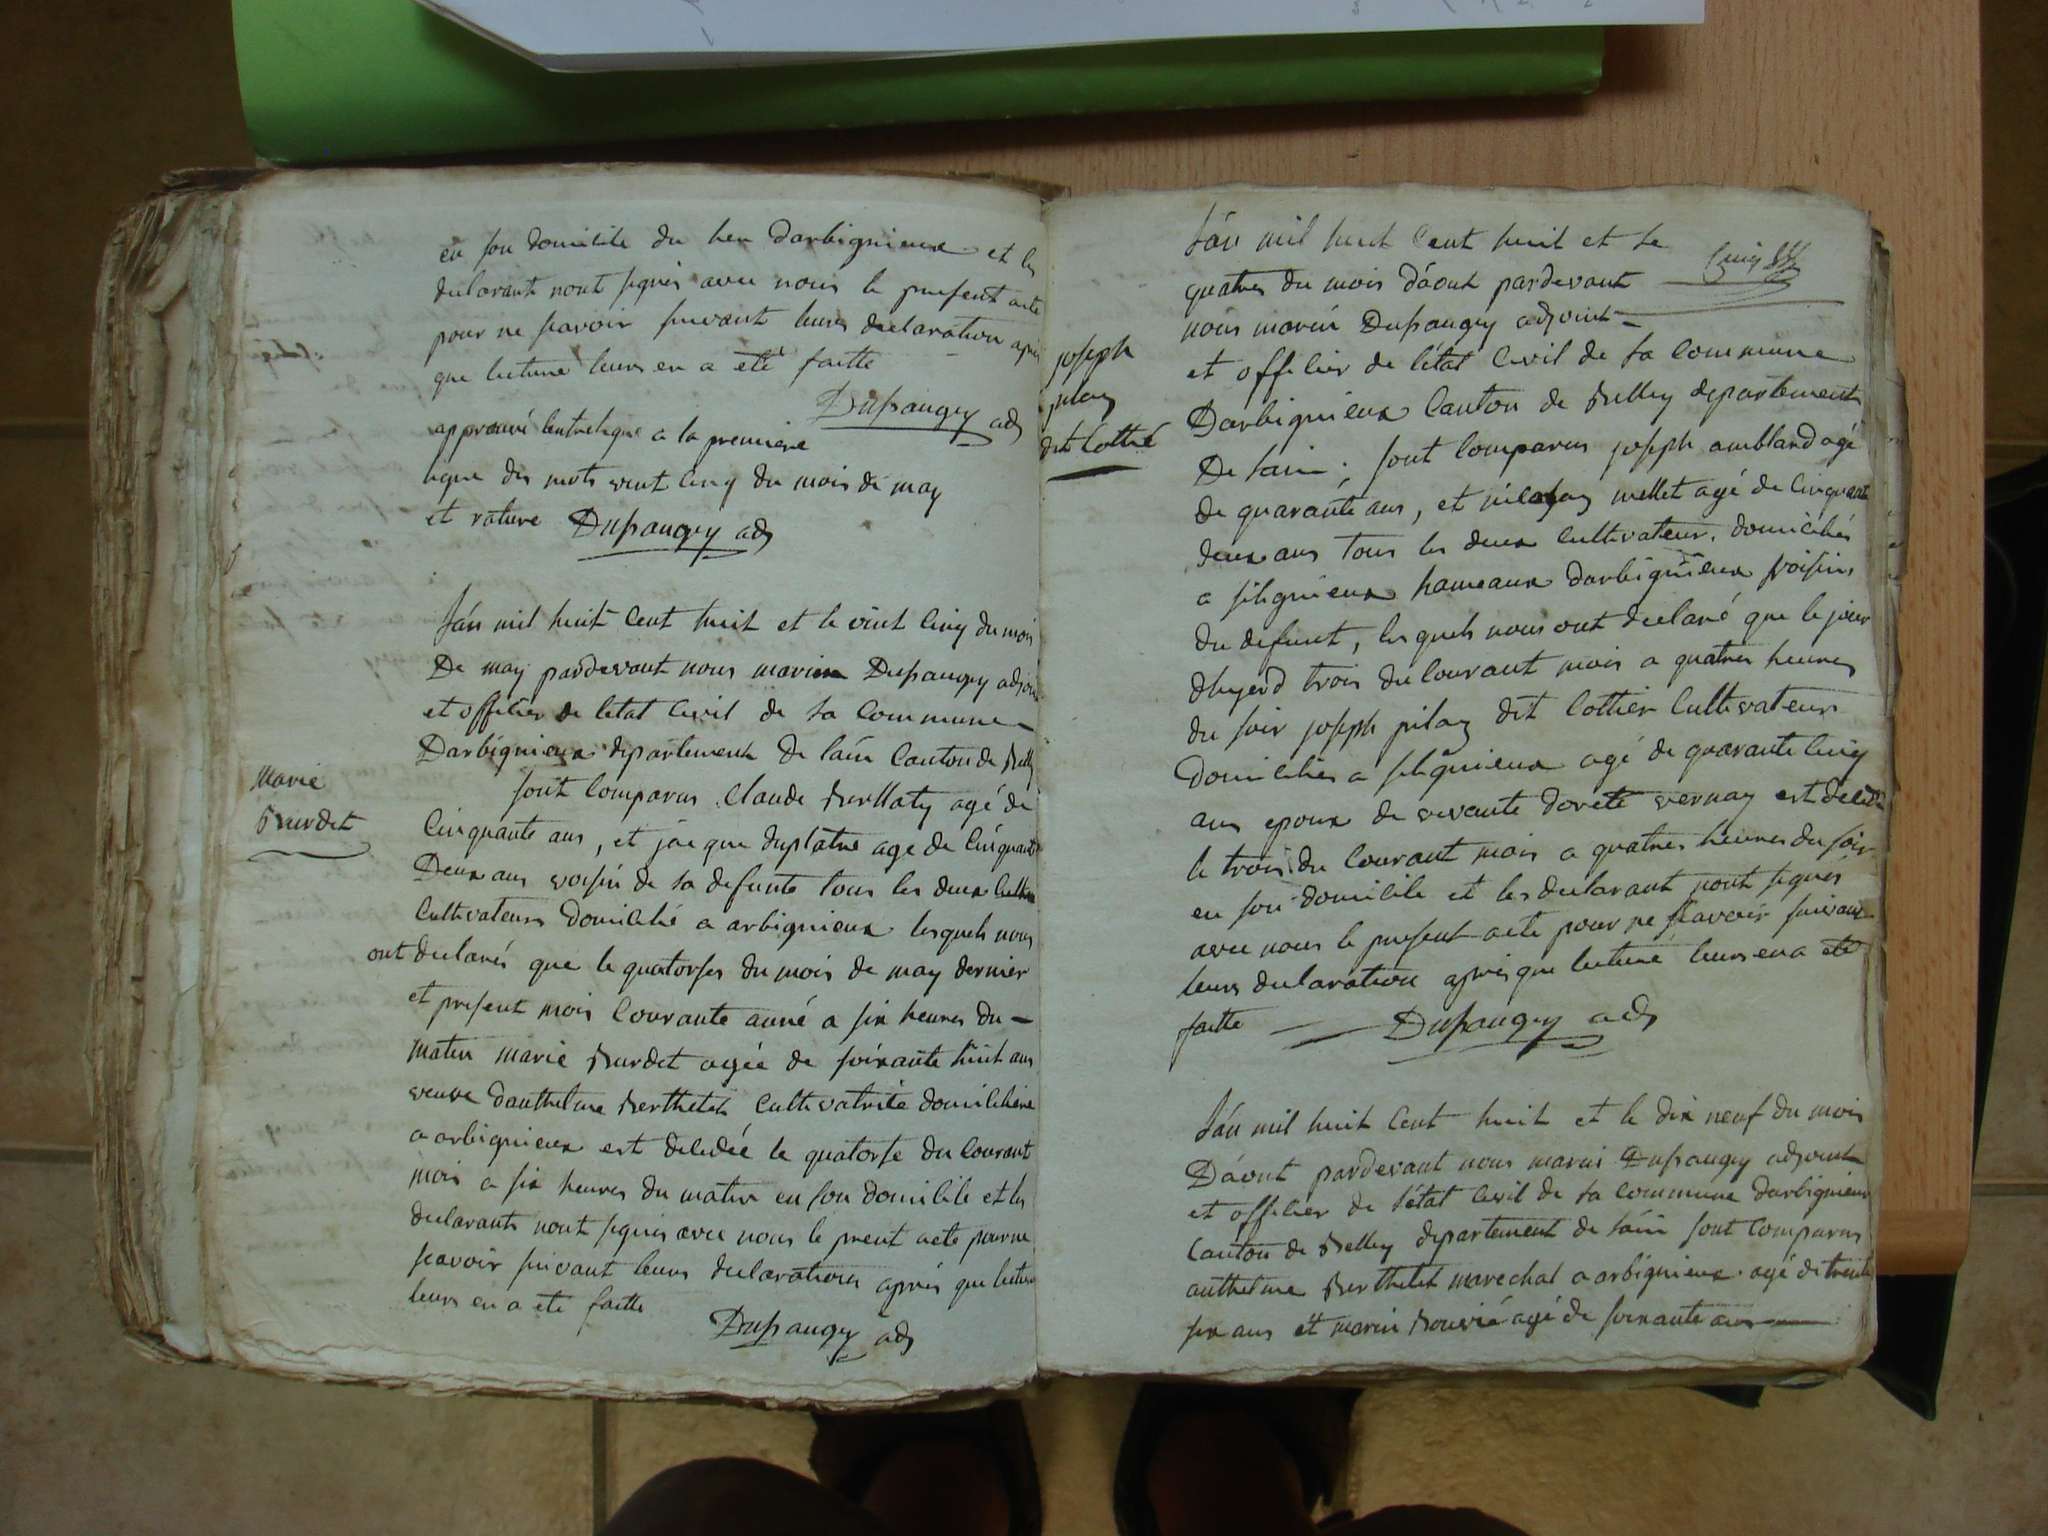 en son domicile du lieu darbignieux et les
declarant nont signés avec nous le present acte
pour ne scavoir suivant leurs declaration apres
que lecture leurs en a eté faitte
Dupaugey adj
approuvé lentreligne a la premiere
ligne des mots vent cinq du mois de may
et rature Dupaugey adj
Marie
Burdet
Lán mil huit cent huit et le vint cinq du mois
De may pardevant nous marin Dupaugey adjoint
et officier de letat civil de la commune
Darbignieux departement de lain canton de Belley
sont comparus Claude agé de
cinquante ans, et jacque duplatre agé de cinquante
Deux ans voisin de la defunte tous les deux
cultivateurs domicilié a arbignieux lesquels nous
ont declarés que le quatorses du mois de may dernier
et present mois courante anné a six heures du
matin marie Burdet agée de soixante huit ans
veuve danthelme Berthelet cultivatrice domiciliée
a arbignieux est decedée le quatorse du courant
mois a six heures du matin en son domicile et les
declarants nont signés avec nous le preent acte pour ne
scavoir suivant leurs declarations aprés que lecture
leurs en a eté faitte
Dupaugey adj
joseph
pilaz
dit Cottié
Lán mil huit cent huit et le
quatres du mois dáout pardevant
nous marin Dupaugey adjoint
et officier de létat civil de la commune
Darbignieux canton de Belley departement
De lain; sont comparus joseph ambland agé
de quarante ans, et mellet agé de cinquante
deux ans tous les deux cultivateur, domiciliés
a silignieux hameaux darbignieux voisins
du defunt, les quels nous ont declaré que le jour
dhyerd trois du courant mois a quatres heures
du soir joseph pilaz dit cottier cultivateur
domiciliés a silignieux agé de quarante cinq
ans epoux de vivante doreté vernay est decedé
le trois du courant mois a quatres heures du soir
en son domicile et les declarant nont signés
avec nous le present acte pour ne scavoir suivant
leurs declaration aprés que lecture leurs en a eté
faitte Dupaugey adj
Lán mil huit cent huit et le dix neuf du mois
Dáout pardevant nous marin Dupaugey adjoint
et officier de létat civil de la commune darbignieux
canton de Belley departement de láin sont comparus
anthelme Berthelet marechal a arbignieux agé de trente
six ans et marin Bouvié agé de soixante ans